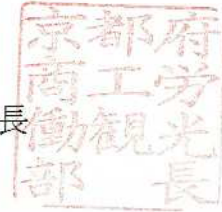 長
京都府
商工労
働観光
部長